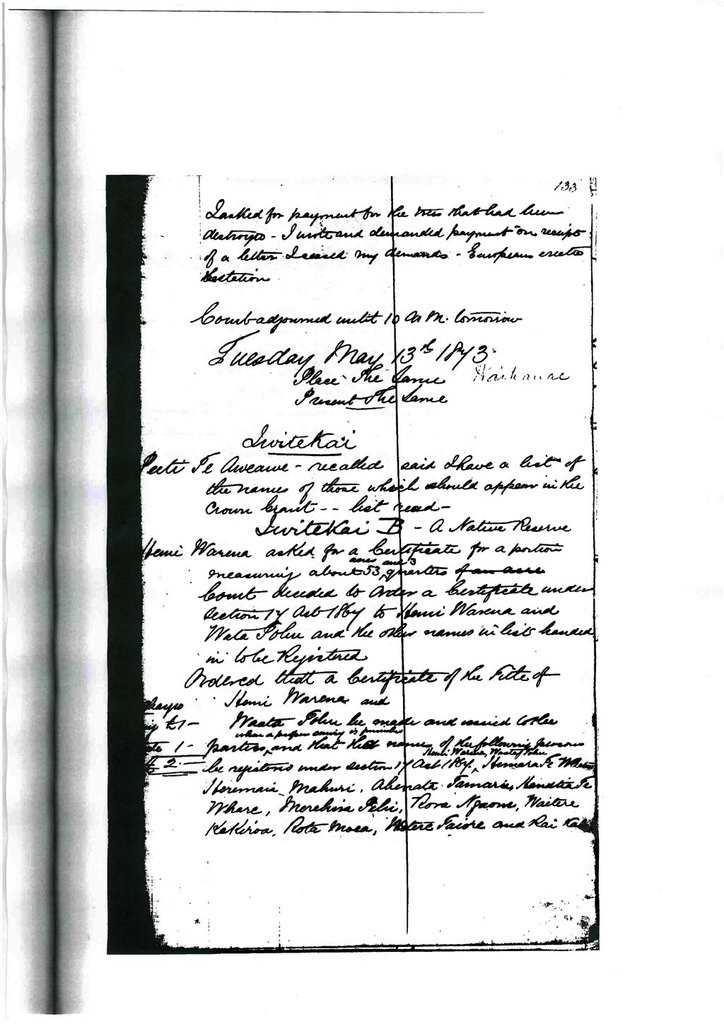 133
I asked for payment for the trees that had been
destroyed - I wrote and demanded payment on receipt
of a letter I ceased my demands - European erected
the station
Court adjourned until 10 A.M. tomorrow
Tuesday May 13th 1873
Place The Same Waikanae
Present The Same
Iwitekai
Peeti Te Aweawe - recalled said I have a list of
the names of those which should appear in the
Crown Grant -- list read -
Iwitekai B - A Native Reserve
Hemi Warena asked for a Certificate for a portion
acres and 3
measuring about 53, quarters of an acre
Court decided to order a Certificate under
section 17 Act 1867 to Hemi Warena and
Wata Pohu and the other names in lists handed
in to be Registered
Ordered that a Certificate of the Title of
Hemi Warena and
1 - Waata Pohu be made and issued to the
when a proper survey is
1 - parties, and that the names of the following persons
Hemi Warena, Waata Pohu
2 - be registered under section 17 Act 1867,
Heremaia Mahuri, Tamarie, Te
Whare, Merehira Ngaone, Waitere
Kakiroa, Rota and Rai